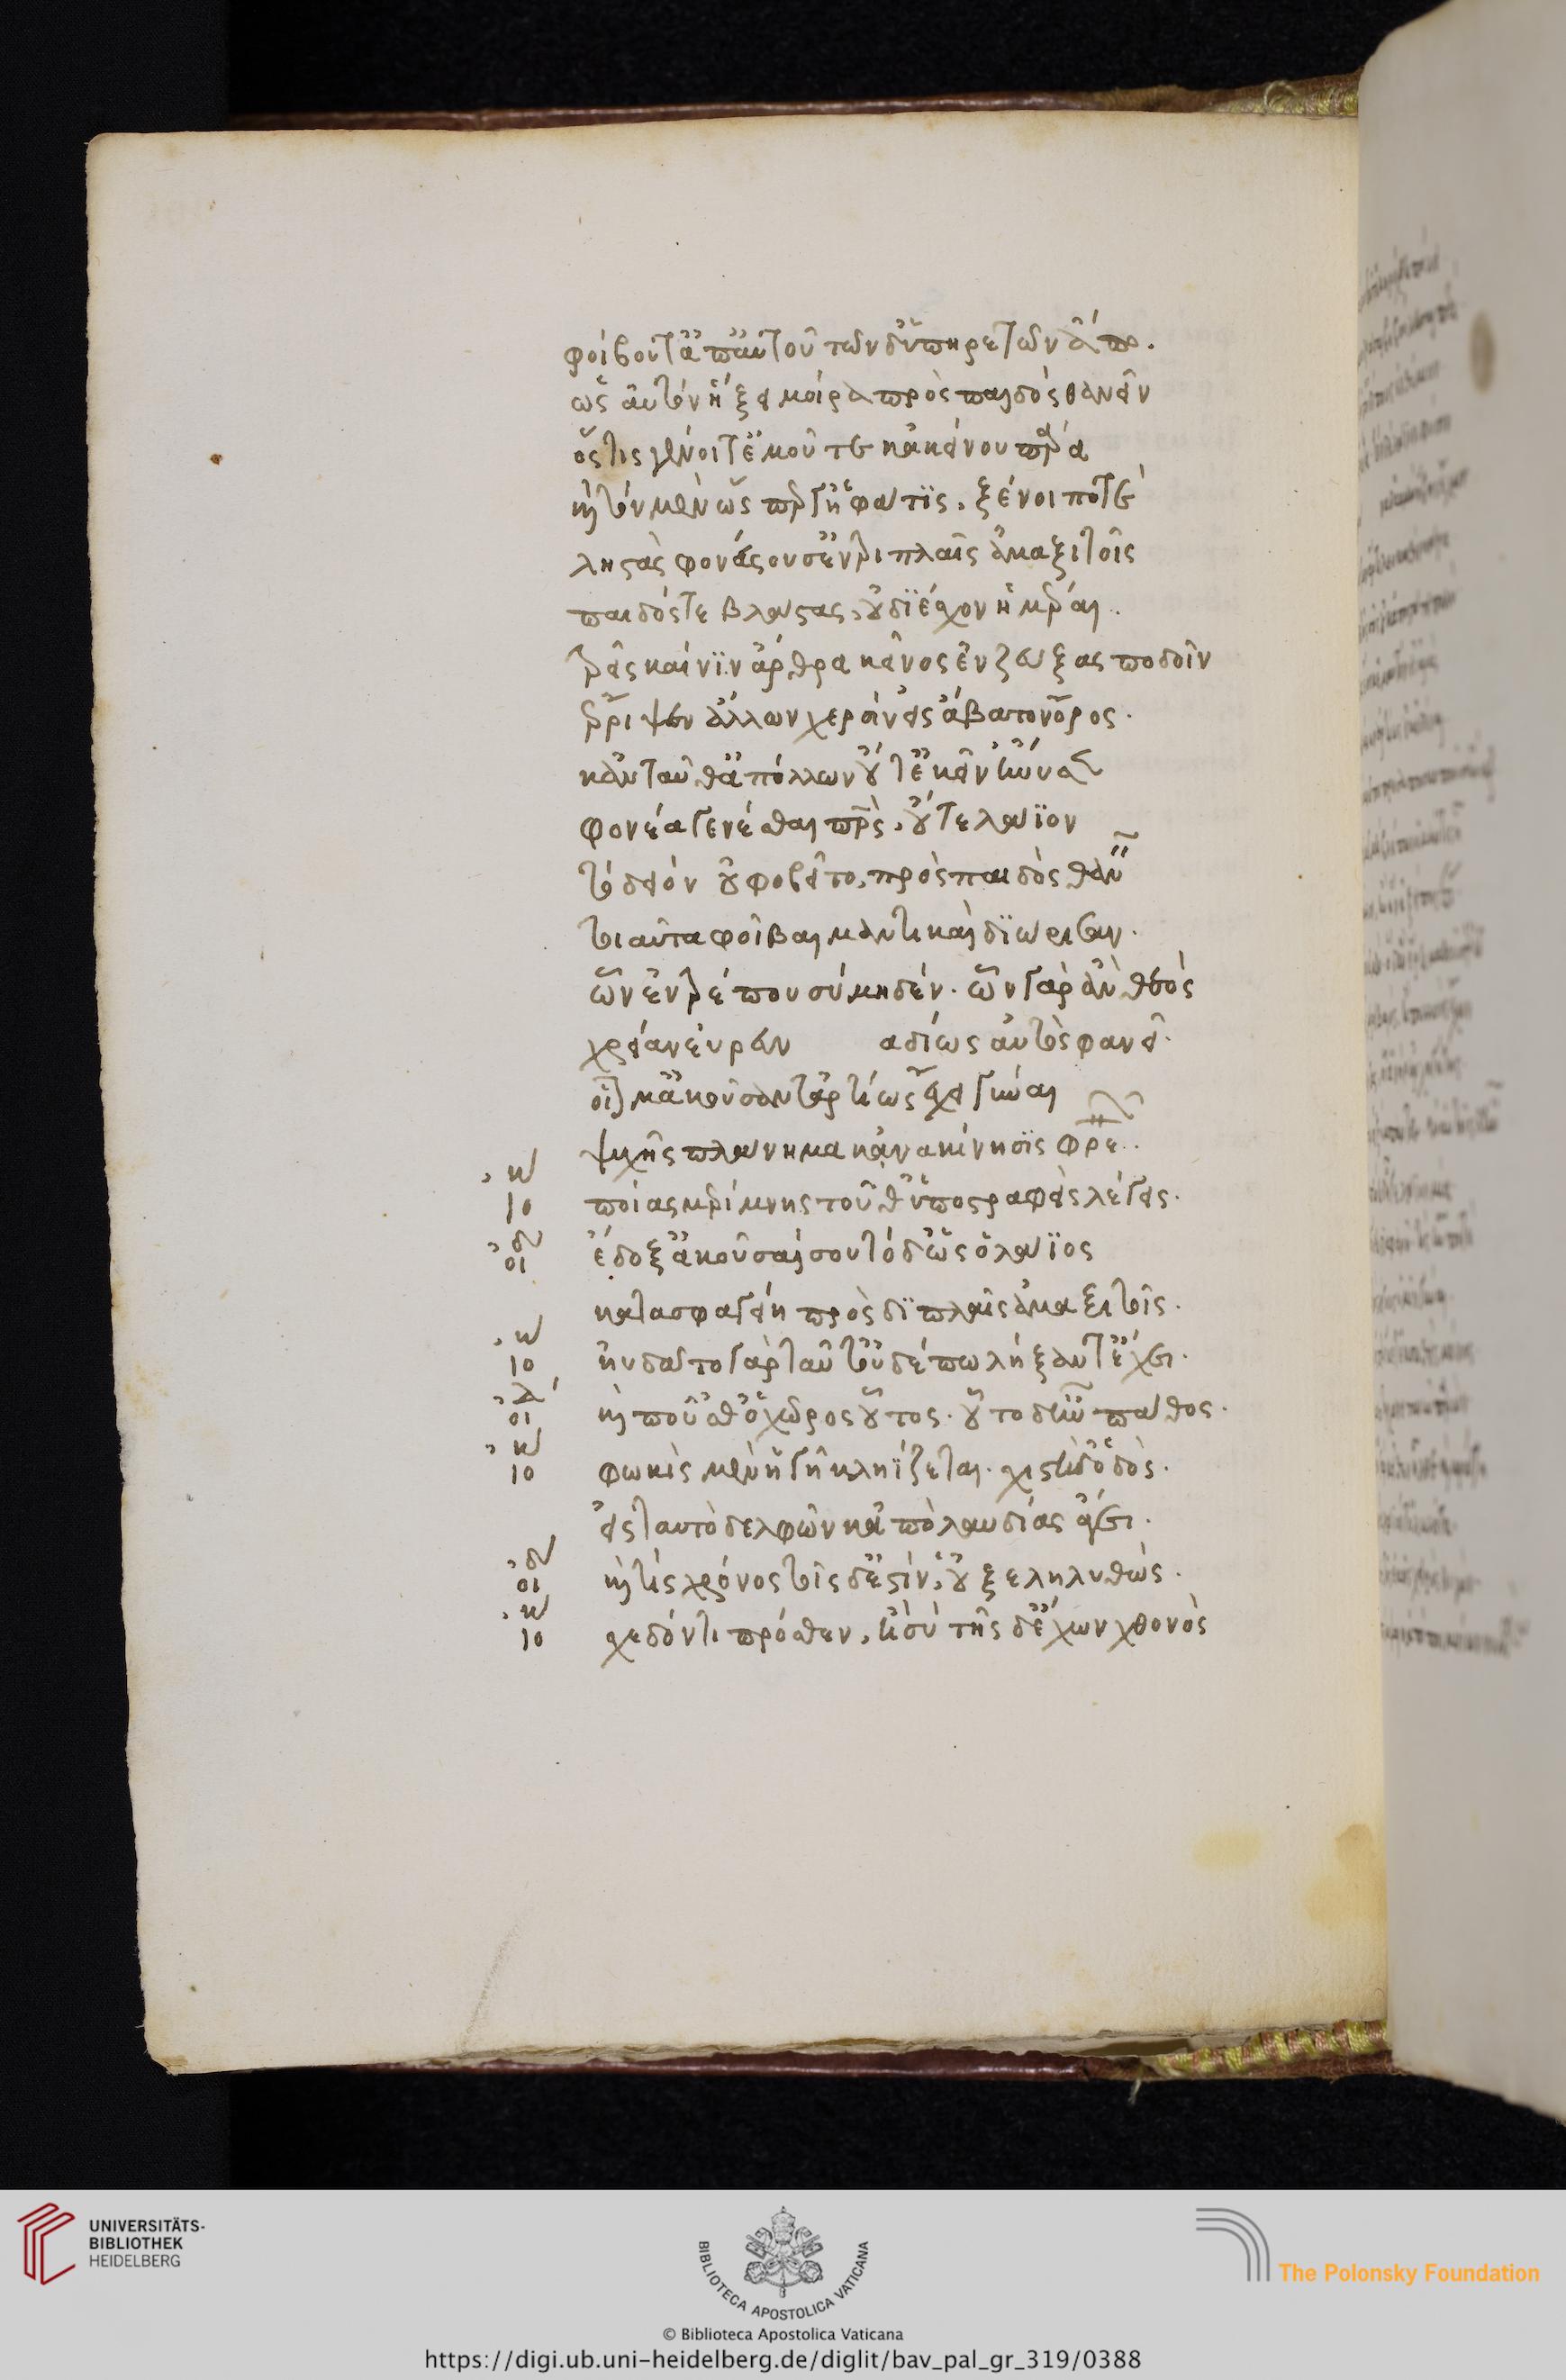 φοίβου γ' ἄπ' αὐτοῦ τῶν δ' ὑπηρετῶν ἄπο.
ὡς αὐτὸν ἥξει μοίρα πρὸς παιδὸς θανεῖν
ὅστις γένοιτ' ἐμοῦ τε κἀκείνου πάρα
καὶ τὸν μὲν ὥσπερ γ' ἡ φάτις, ξένοι ποτὲ
λησταὶ φονεύουσ' ἐν τριπλαῖς ἁμαξιτοῖς
παιδὸς δὲ βλάστας, οὐ διέσχον ἡμέραι.
τρεῖς καί νιν ἄρθρα κεῖνος ἐνζεύξας ποδοῖν
ἔρριψεν ἄλλων χερσὶν εἰς ἄβατον ὄρος.
κἀνταῦθ' ἀπόλλων οὔτ' ἐκεῖνον ἤνυσε
φονέα γενέσθαι πατρὸς, οὔτε λάϊον
τὸ δεινὸν οὑφοβεῖτο, πρὸς παιδὸς θανεῖν
τοιαῦτα φοῖβαι μαντικαὶ διώρισαν.
ὧν ἐντρέπου σύ μηδέν. ὧν γὰρ ἂν θεὸς
χρείαν εὑρεῖν αδίως αὐτὸς φανεῖ.
οἷόν μ' ἀκούσαντ' ἀρτίως ἔχει γύναι
ψυχῆς πλάνημα κἀνακίνησις φρενῶν.
ιο ποίας μερίμνης τοῦθ' ὑποστραφεὶς λέγεις.
οι ἔδοξ' ἀκοῦσαι σου τόδ' ὡς ὁ λάϊος
κατασφαγείη πρὸς διπλαῖς ἁμαξιτοῖς.
ιο ηὐδᾶτο γὰρ ταῦτ' οὐδέπω λήξαντ' ἔχει.
οι καὶ ποῦ 'σθ' ὁ χῶρος οὗτος. οὗ τόδ' ἦν πάθος.
ιο φωκὶς μὲν ἡ γῆ κληΐζεται. σχιστὴ δ' ὁδὸς.
εἰς ταυτὸ δελφῶν κἀπὸ δαυλίας ἄγει.
οι καὶ τίς χρόνος τοῖς δ' ἐστὶν, οὑξεληλυθώς.
ιο σχεδόν τι πρόσθεν, ἢ σὺ τῆς δ' ἔχων χθονὸς
UNIVERSITÄTS-
BIBLIOTHEK
HEIDELBERG
BIBLIOTECA APOSTOLICA VATICANA
The Polonsky Foundation
© Biblioteca Apostolica Vaticana
https://digi.ub.uni-heidelberg.de/diglit/bav_pal_gr_319/0388